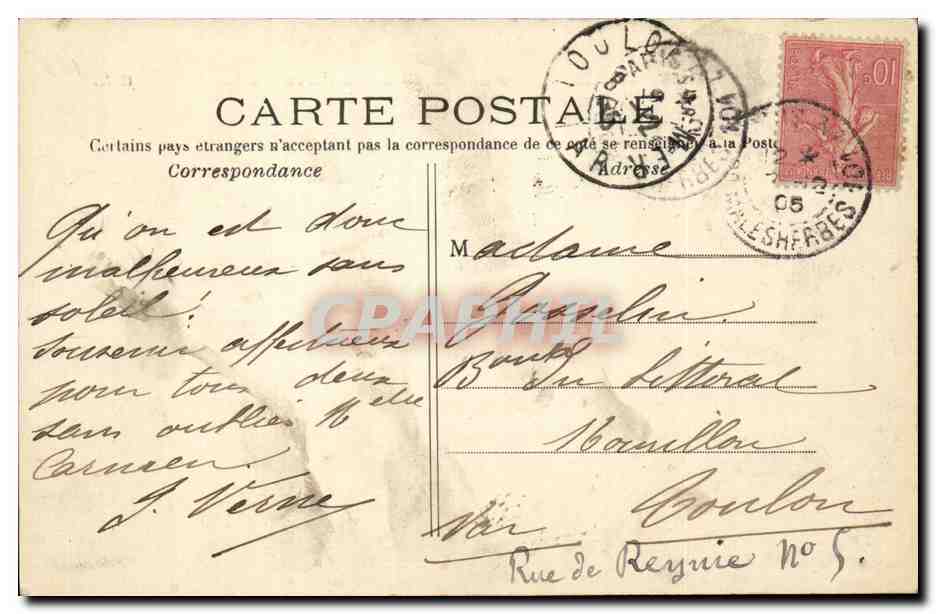 CARTE POSTALE
Certains pays étrangers n'acceptant pas la correspondance de ce côté se renseigner à la Poste
Correspondance
Adresse
Qu'on est donc
malheureux sans
soleil!
Souvenir affectueux
pour tous deux
sans oublier Melle
Carmen.
J. Verne
Madame
Gosselin.
Bould du Littoral
Mourillon
Toulon
Var
Rue de Reynie No 5.
CPAPHIL
TOULON
VAR
PARIS
MALESHERBES
05
10